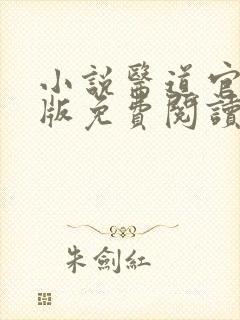 小說醫道官
版免費閱讀
朱劍紅